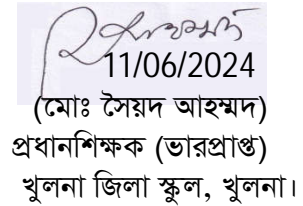 11/06/2024
(মোঃ সৈয়দ আহম্মদ)
প্রধানশিক্ষক (ভারপ্রাপ্ত)
খুলনা জিলা স্কুল, খুলনা।